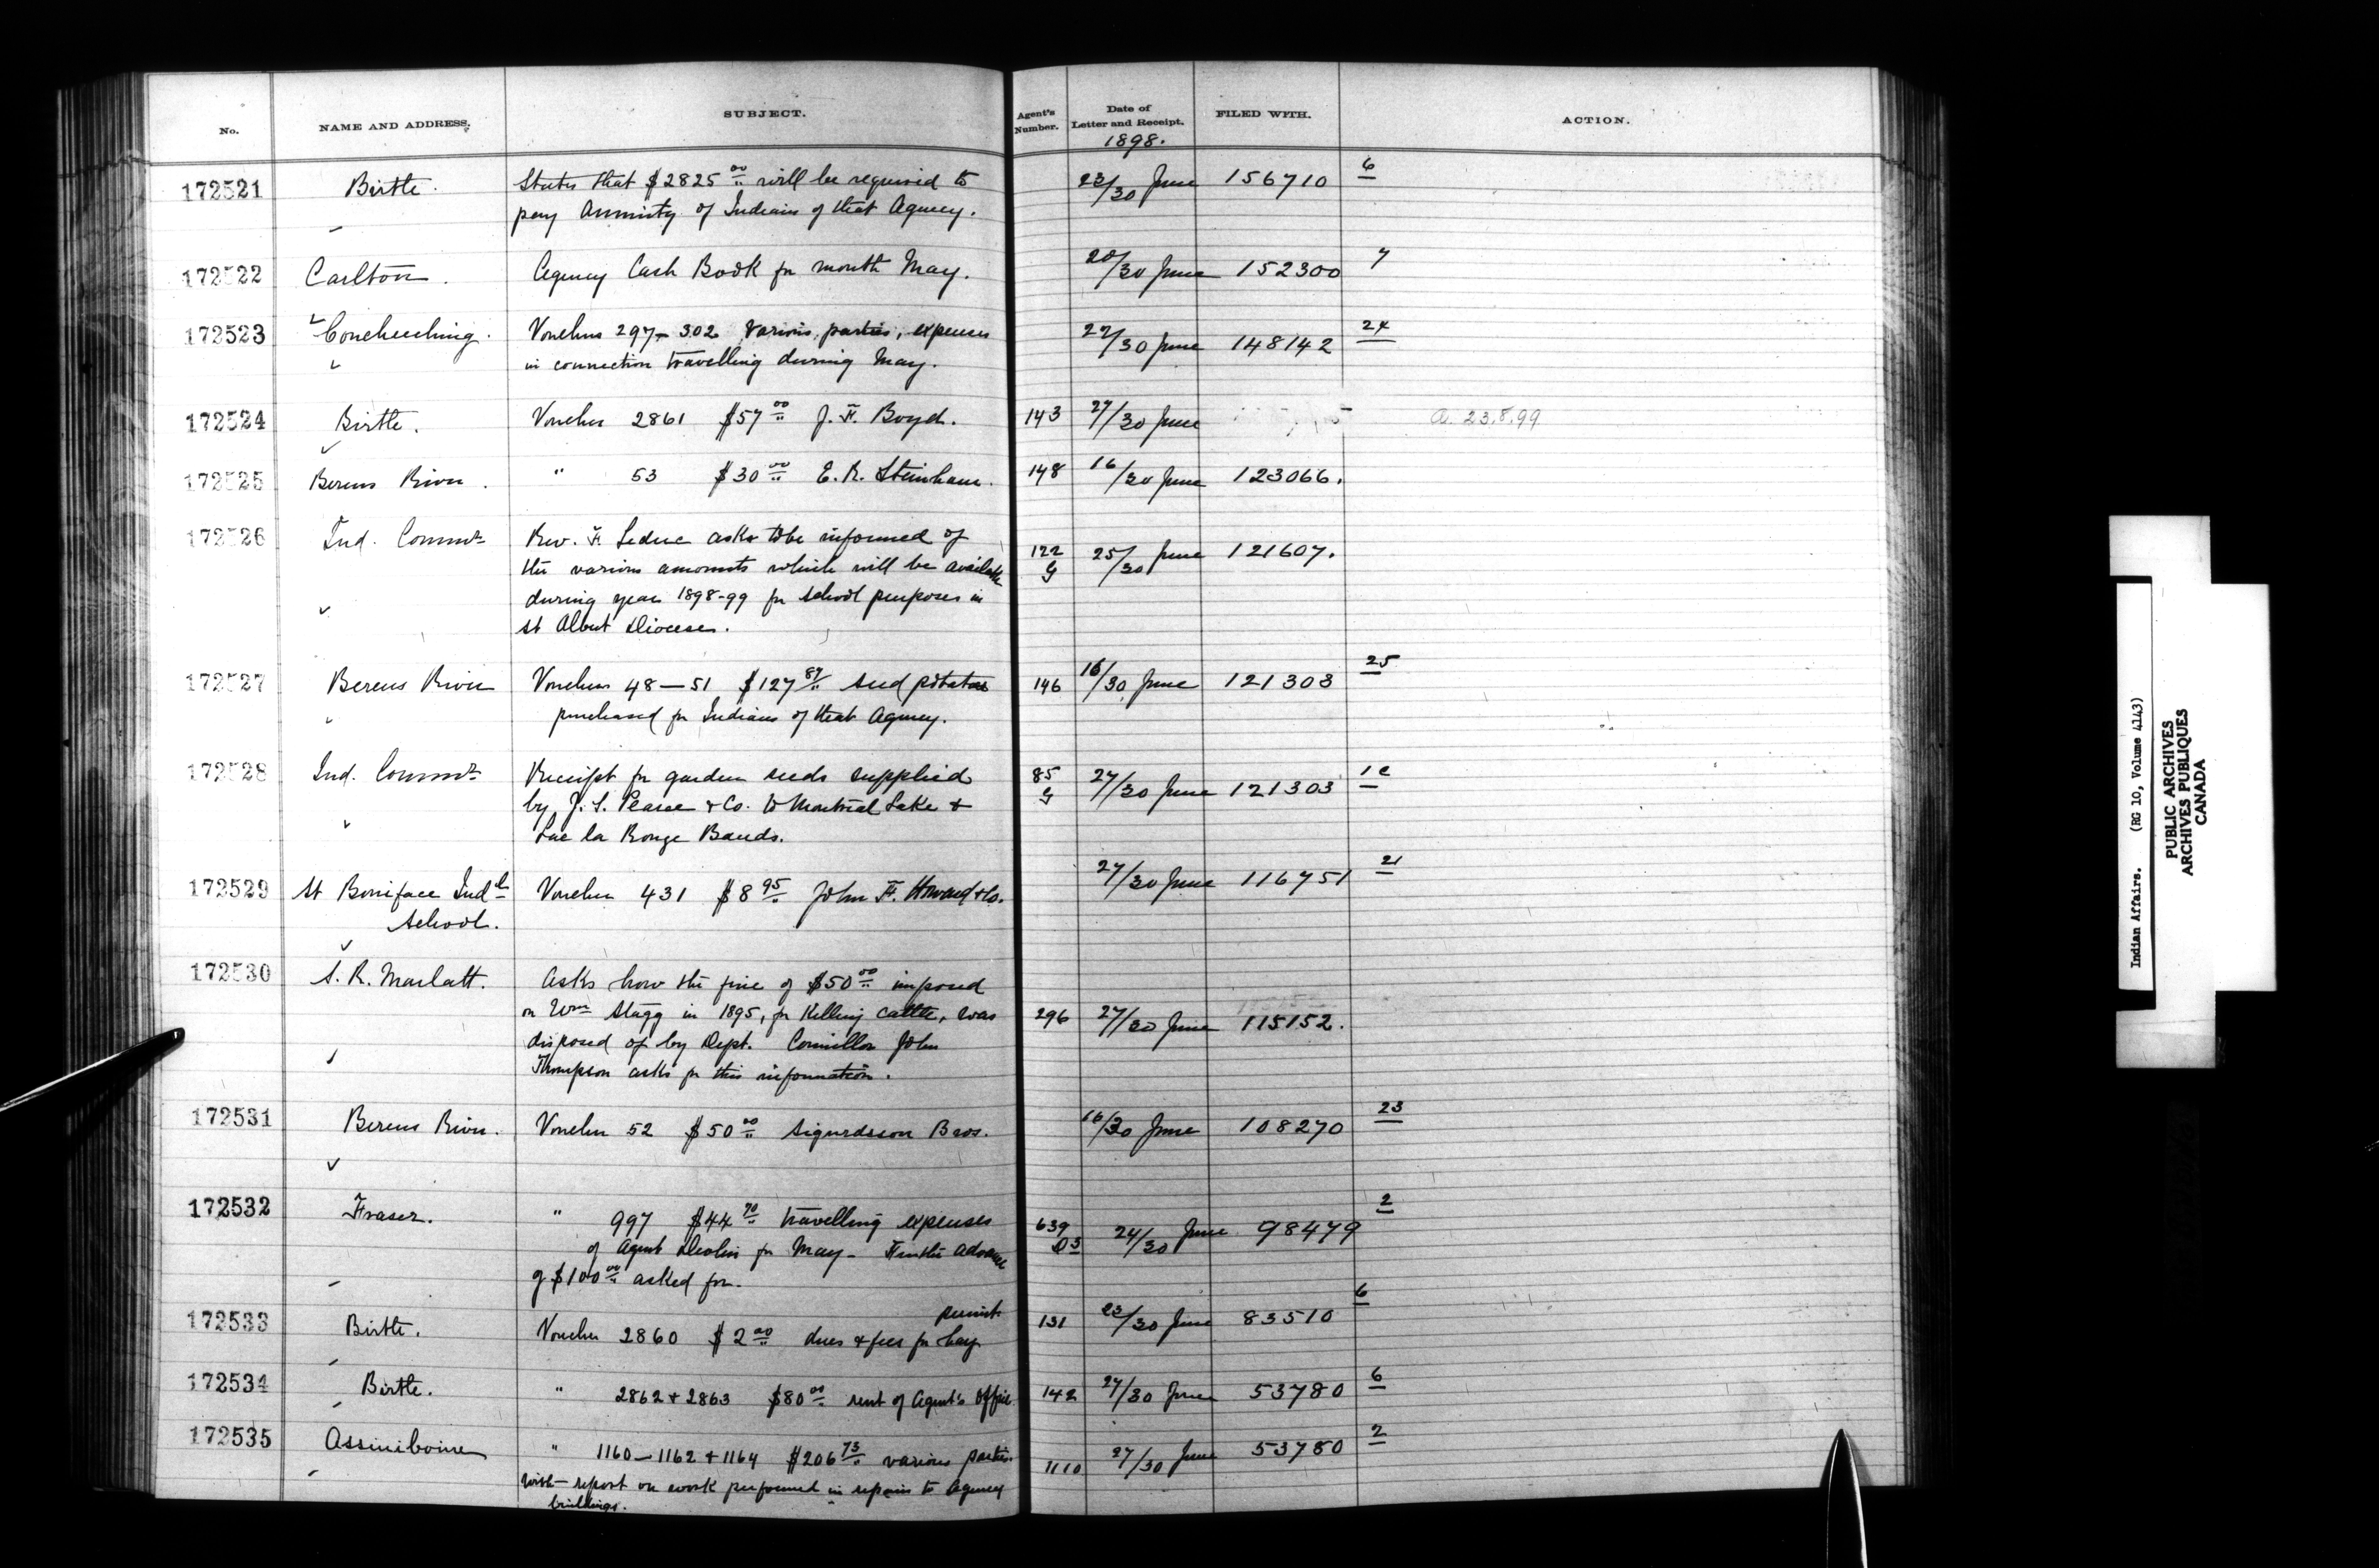 No. NAME AND ADDRESS. SUBJECT. Agent's Number. Date of Letter and Receipt. FILED WITH. ACTION.
1898.
172521 Birtle. States that $2825 00 will be required to 23/30 June 156710 6
pay Annuity of Indians of that Agency.
172522 Carlton. Agency Cash Book for month May. 20/30 June 152300 7
172523 Couchiching. Vouchers 297-302 Various parties, expenses 22/30 June 148142 24
in connection travelling during May.
172524 Birtle. Voucher 2861 $57 00 J. F. Boyd. 143 27/30 June a. 23.8.99
172525 Berens River. " 53 $30 00 E. R. Steinhaur. 148 16/30 June 123066.
172526 Ind. Commr Rev. H Leduc asks to be informed of 122 G 25/30 June 121607.
the various amounts which will be available
during year 1898-99 for school purposes in
St Albert Diocese.
172527 Berens River Vouchers 48-51 $127 87 seed potatoes 146 16/30 June 121303 25
purchased for Indians of that Agency.
172528 Ind. Commr Receipt for garden seeds supplied 85 G 27/30 June 121303 1c
by J. S. Pearce & Co. to Montreal Lake &
Lac la Ronge Bands.
172529 St Boniface Indl Voucher 431 $8 95 John F. Howard & Co. 27/30 June 116751 21
School.
172530 S. R. Marlatt. Asks how the fine of $50 00 imposed
on Wm Stagg in 1895, for killing cattle, was 296 27/30 June 115152.
disposed of by Dept. Councillor John
Thompson asks for this information.
172531 Berens River. Voucher 52 $50 00 Sigurdsson Bros. 16/30 June 108270 23
172532 Fraser. " 997 $44 70 travelling expenses 639 D3 24/30 June 98479 2
of Agent Devlin for May - Further advance
of $100 00 asked for.
172533 Birtle. Voucher 2860 $2 00 dues & fees for hay permit 131 23/30 June 83510 6
172534 Birtle. " 2862 & 2863 $80 00 rent of Agent's Office 142 27/30 June 53780 6
172535 Assiniboine " 1160-1162 & 1164 $206 73 various parties. 1110 27/30 June 53780 2
with report on work performed in repairs to Agency
buildings.
Indian Affairs. (RG 10, Volume 4143)
PUBLIC ARCHIVES
ARCHIVES PUBLIQUES
CANADA